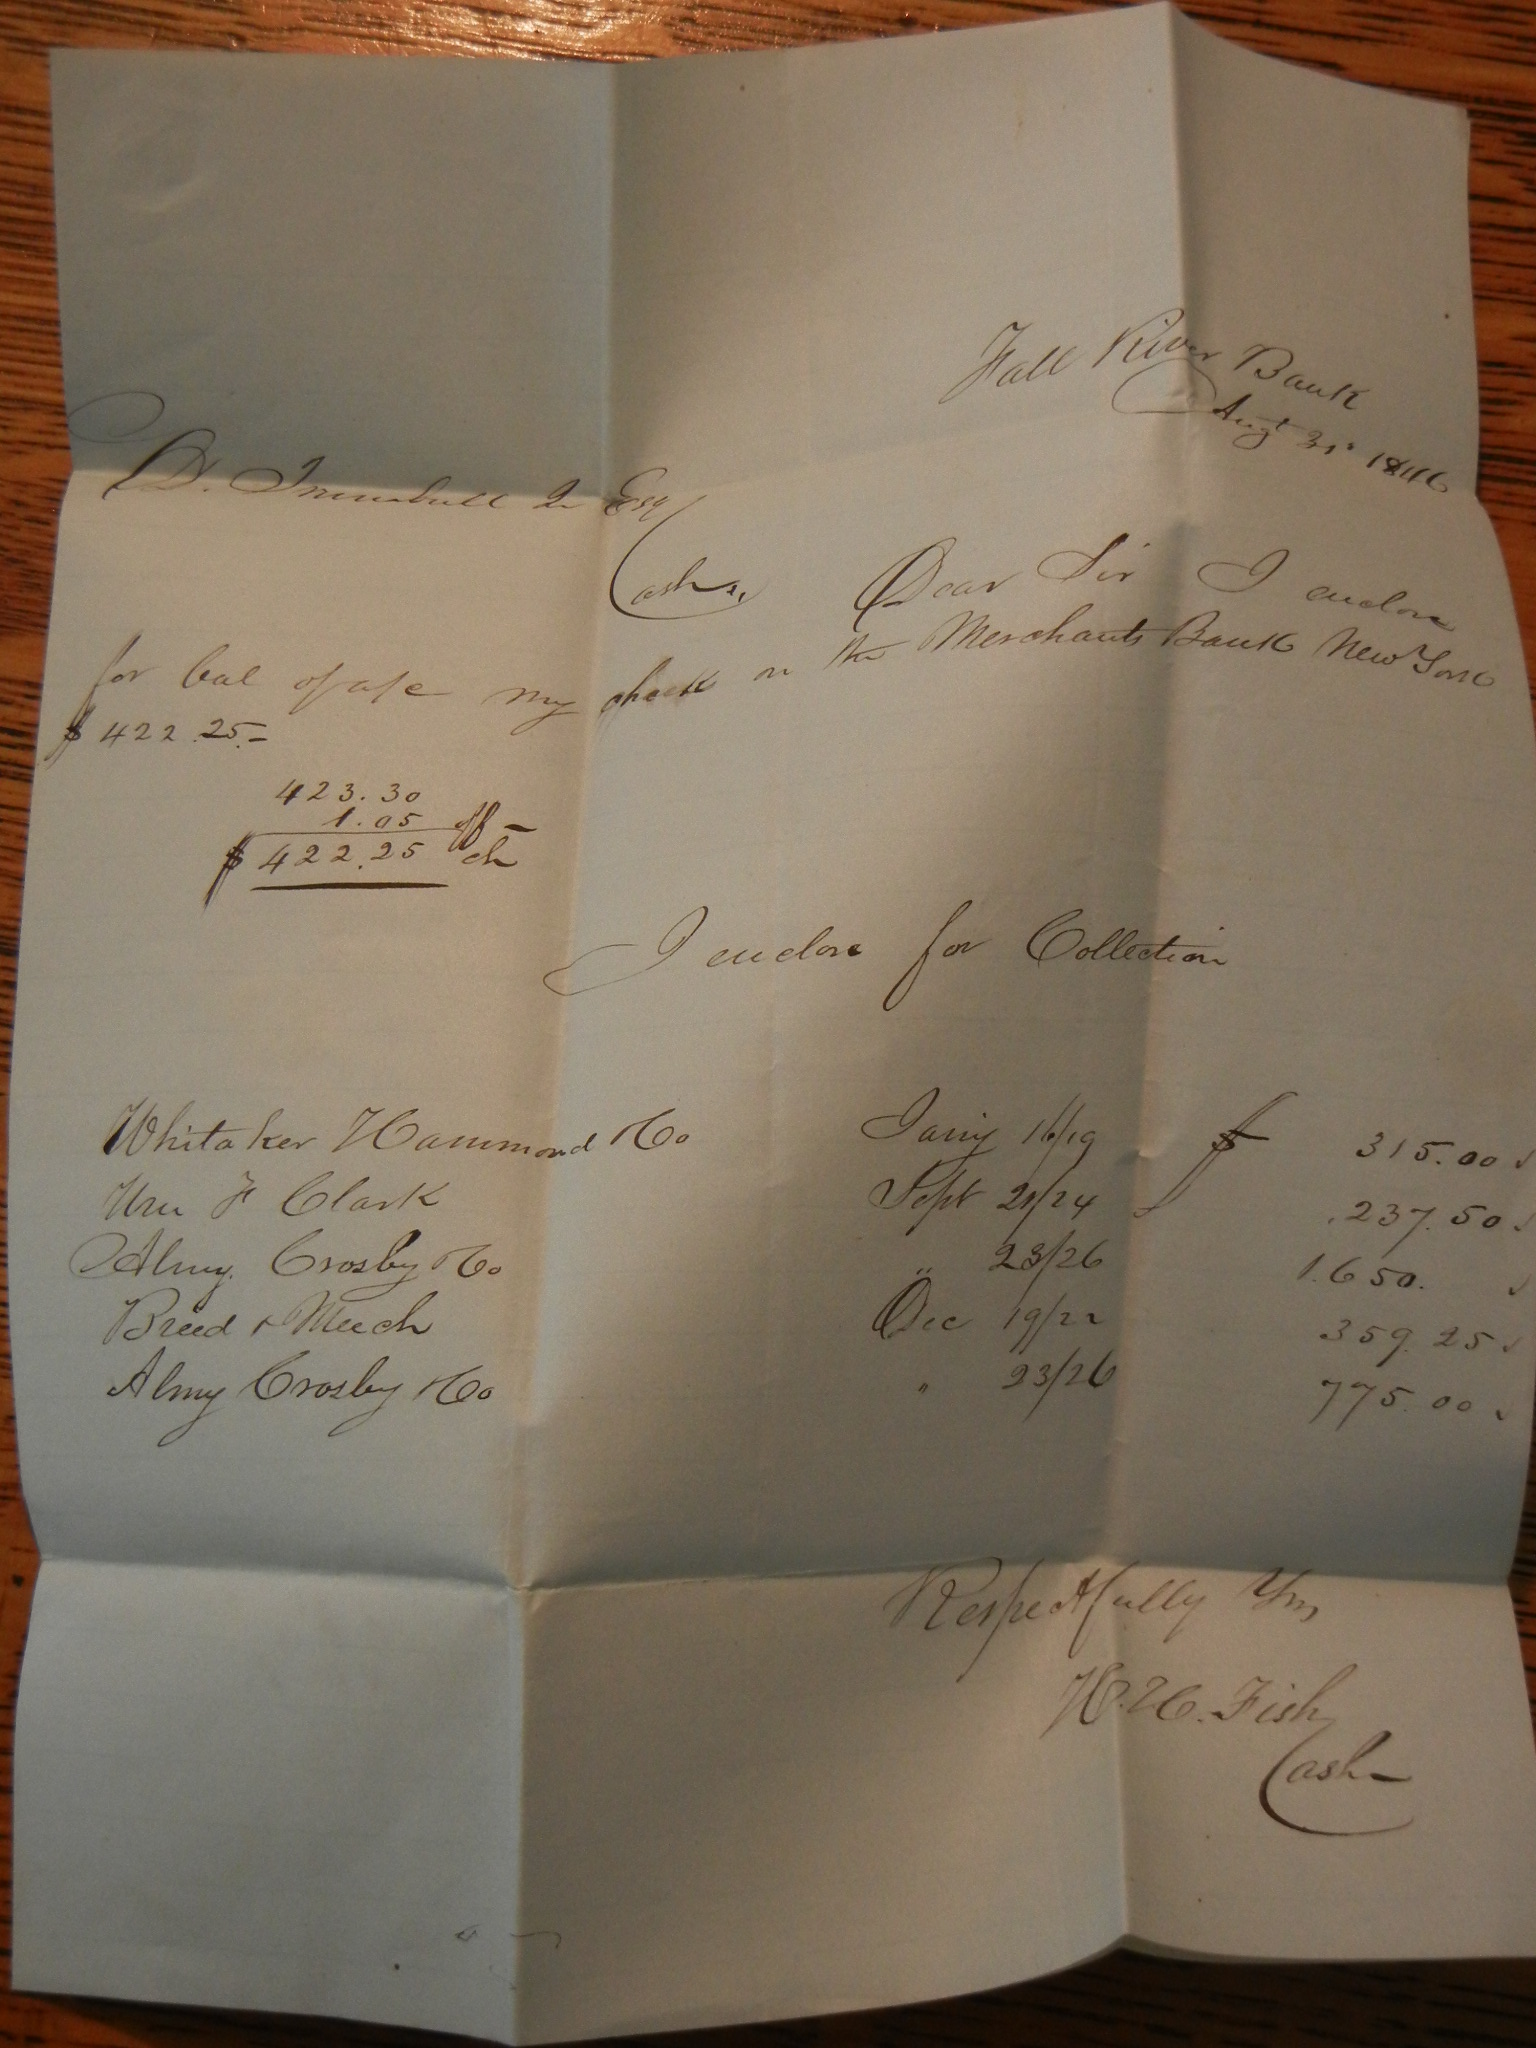 Fall River Bank
Augt 31st 1846
D. Trumbull Jr Esq
Cashr,
Dear Sir I enclose
for bal of a/c my check on the Merchants Bank New York
$ 422.25.-
423.30
1.05 off -
$ 422.25 ch
I enclose for Collection
Whitaker Hammond & Co Jany 16/19 $ 315.00
Wm F Clark Sept 21/24 237.50
Almy Crosby & Co " 23/26 1.650.
Breed & Meech Dec 19/22 359.25
Almy Crosby & Co " 23/26 775.00
Respectfully Yrs
H. H. Fish
Cash